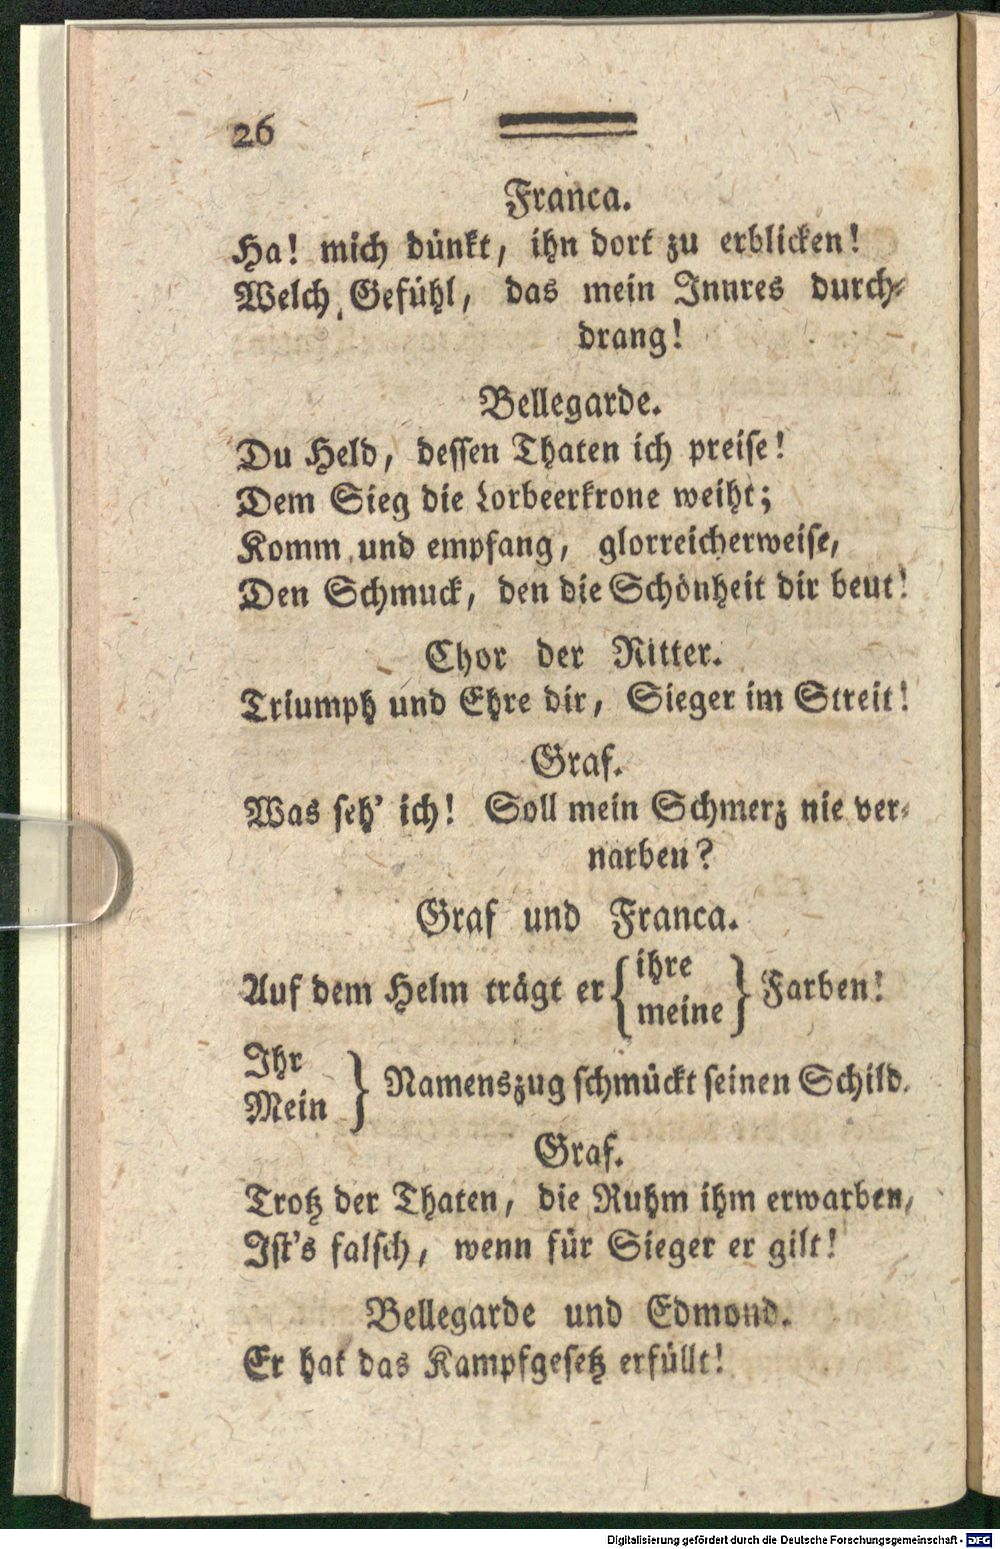 26
Franca.
Ha! mich dünkt, ihn dort zu erblicken!
Welch Gefühl, das mein Innres durch-
drang!
Bellegarde.
Du Held, dessen Thaten ich preise!
Dem Sieg die Lorbeerkrone weiht;
Komm und empfang, glorreicherweise,
Den Schmuck, den die Schönheit dir beut!
Chor der Ritter.
Triumph und Ehre dir, Sieger im Streit!
Graf.
Was seh' ich! Soll mein Schmerz nie ver-
narben?
Graf und Franca.
Auf dem Helm trägt er { ihre
meine } Farben!
Ihr
Mein } Namenszug schmückt seinen Schild.
Graf.
Trotz der Thaten, die Ruhm ihm erwarben,
Ist's falsch, wenn für Sieger er gilt!
Bellegarde und Edmond.
Er hat das Kampfgesetz erfüllt!
Digitalisierung gefördert durch die Deutsche Forschungsgemeinschaft - DFG